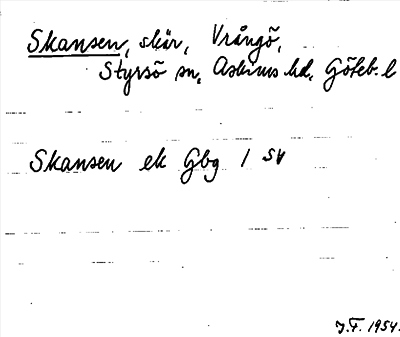 Skansen, skär, Vrångö,
Styrsö sn, Askims hd, Göteb. l
Skansen ek Gbg 1 SV
J.F. 1954.